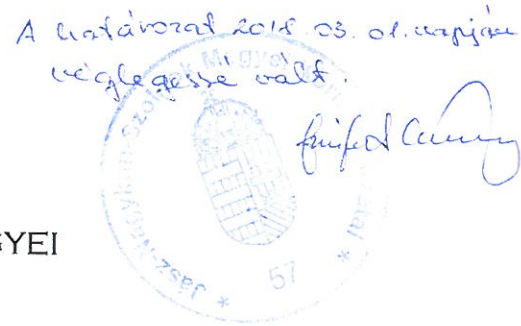 A határozat 2018. 03. 01. napján
véglegessé vált.
Jász-Nagykun-Szolnok Megyei
57
GYEI